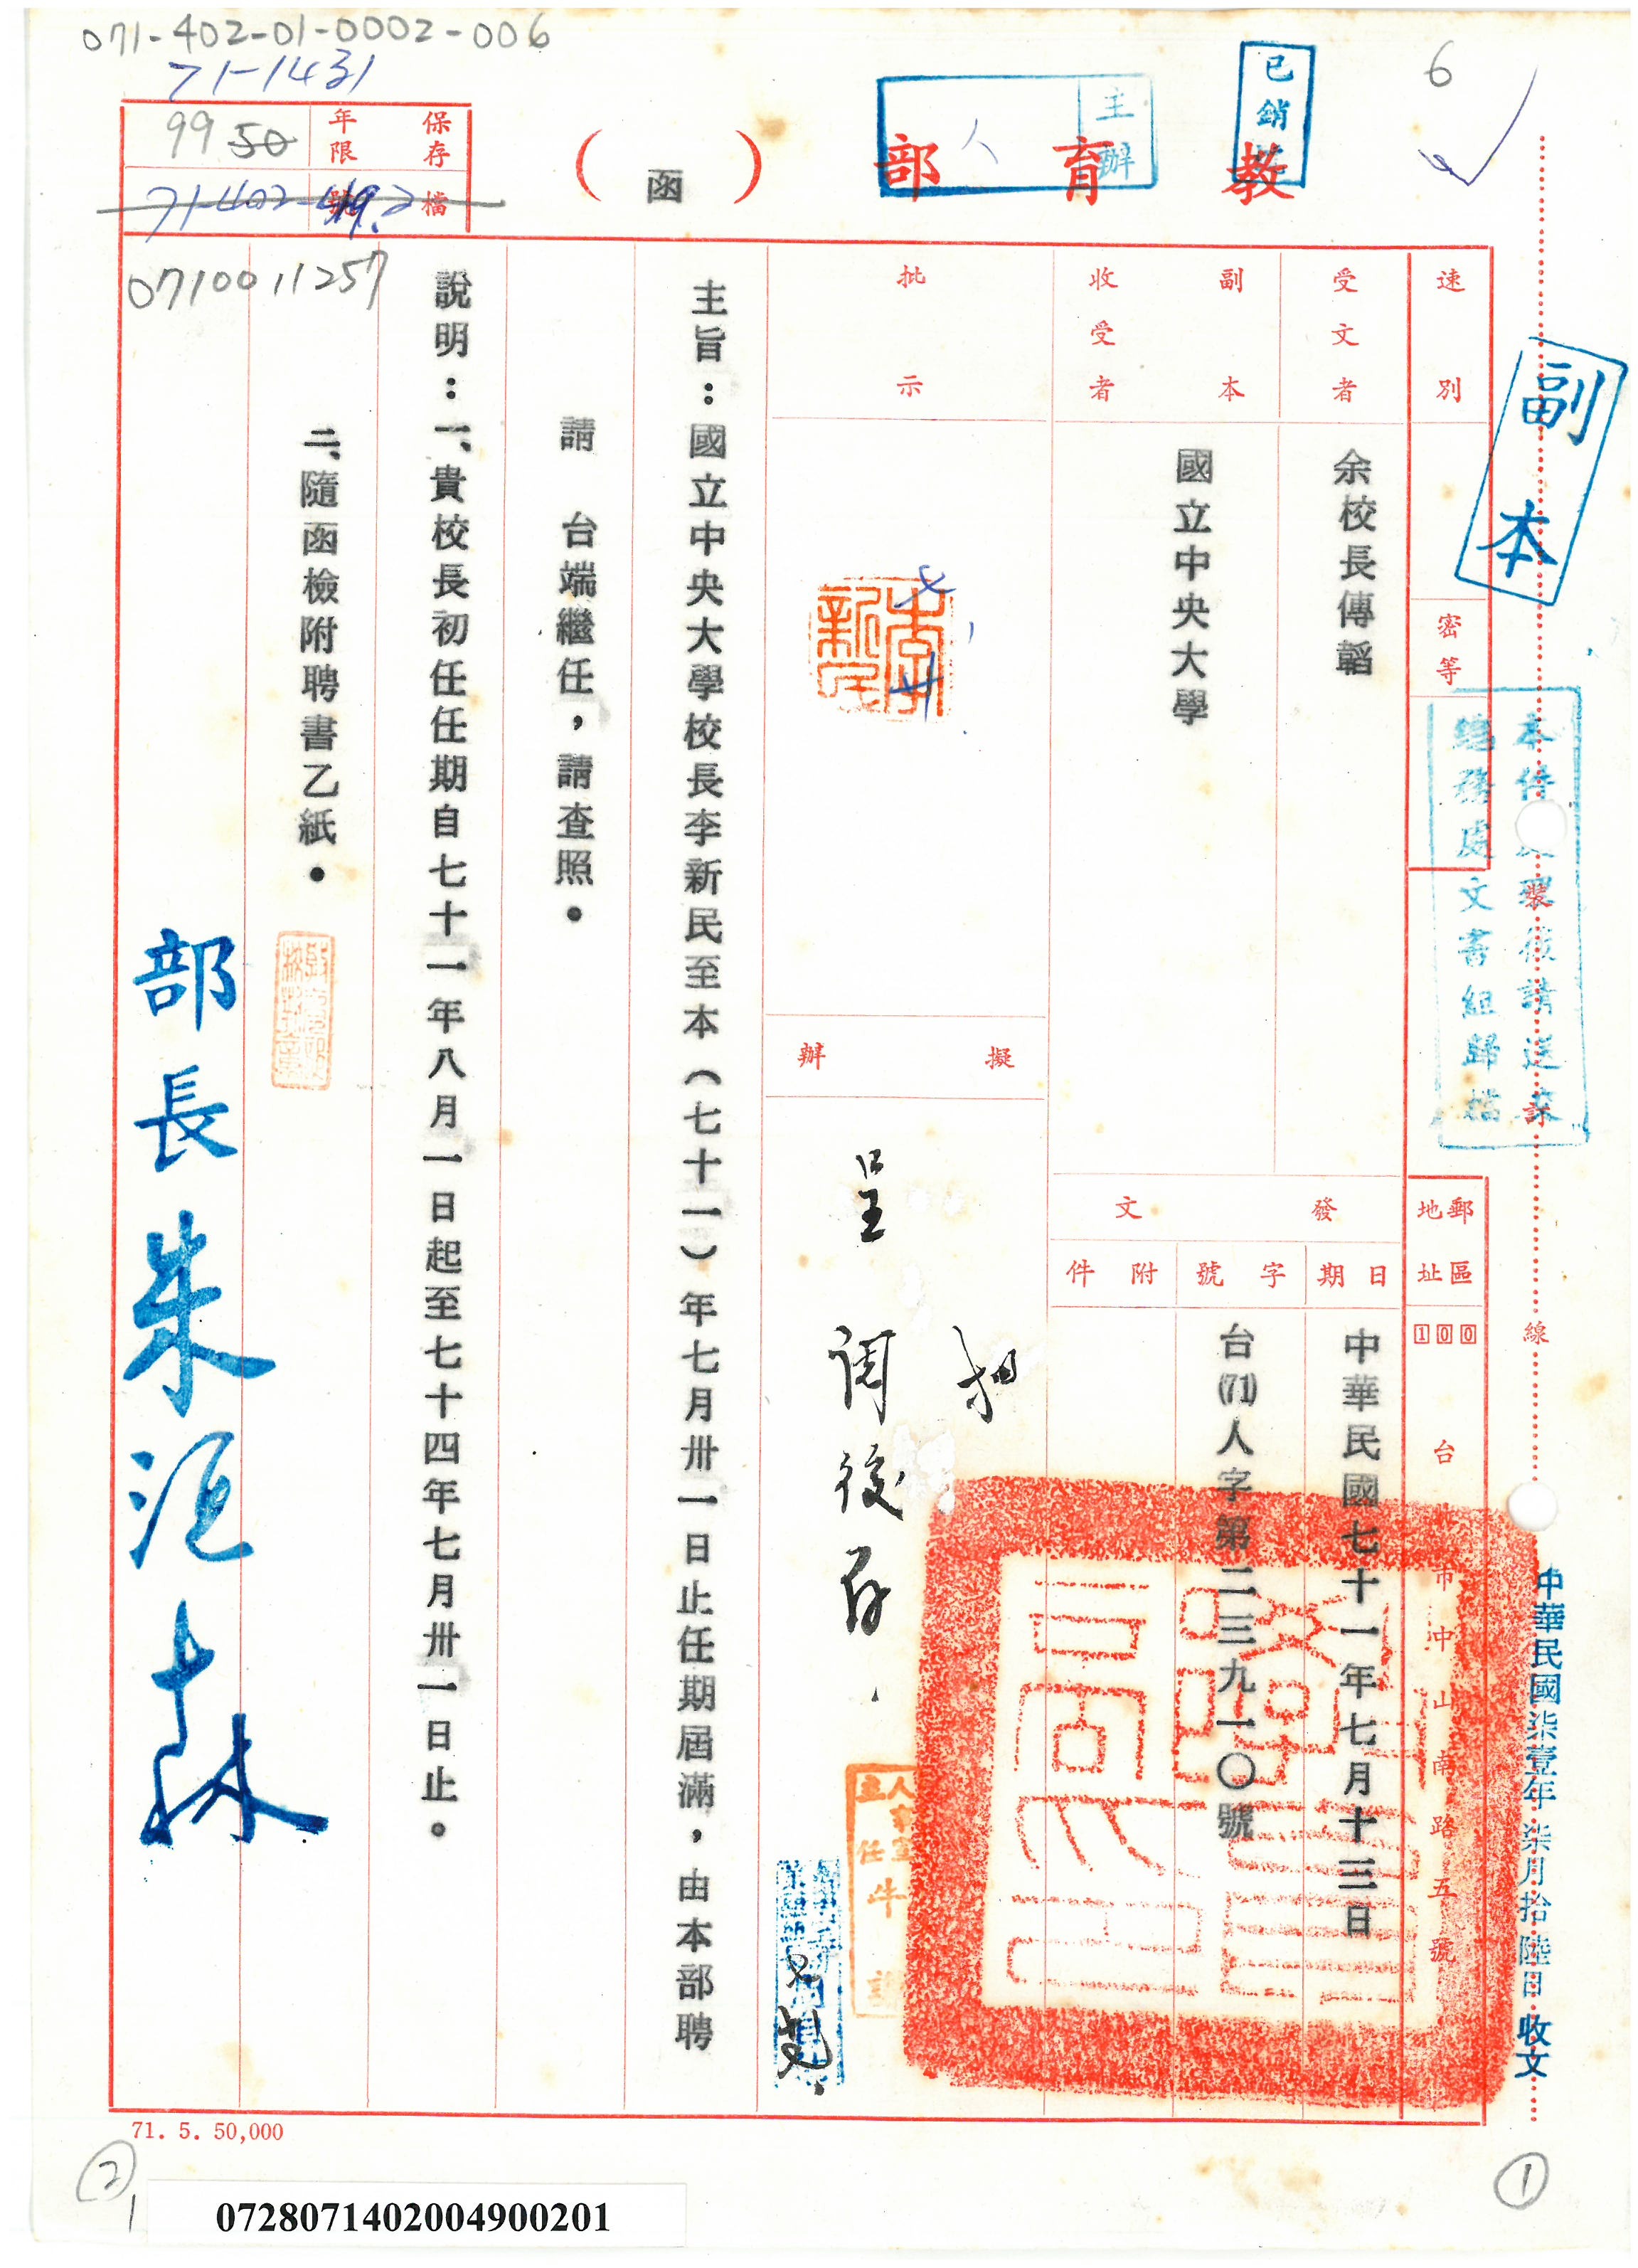 071-402-01-0002-006
71-1431
6
已銷
主辦
人
教育部
(函)
保存年限
99 50
檔號
71-402-49.2
0710011257
副本
速別
密等
受文者
余校長傳韜
副本收受者
國立中央大學
郵區地址
100
台北市中山南路五號
發文
日期
中華民國七十一年七月十三日
字號
台(71)人字第二三九一〇號
附件
批示
七、廿
李新民
擬辦
呈
閱後存.
主旨:國立中央大學校長李新民至本(七十一)年七月卅一日止任期屆滿,由本部聘
請 台端繼任,請查照。
說明:一、貴校長初任任期自七十一年八月一日起至七十四年七月卅一日止。
二、隨函檢附聘書乙紙。
部長朱滙森
人事室
主任牛
總務處文書組歸檔
裝訂線
中華民國柒壹年柒月拾陸日收文
71. 5. 50,000
②
1
①
0728071402004900201